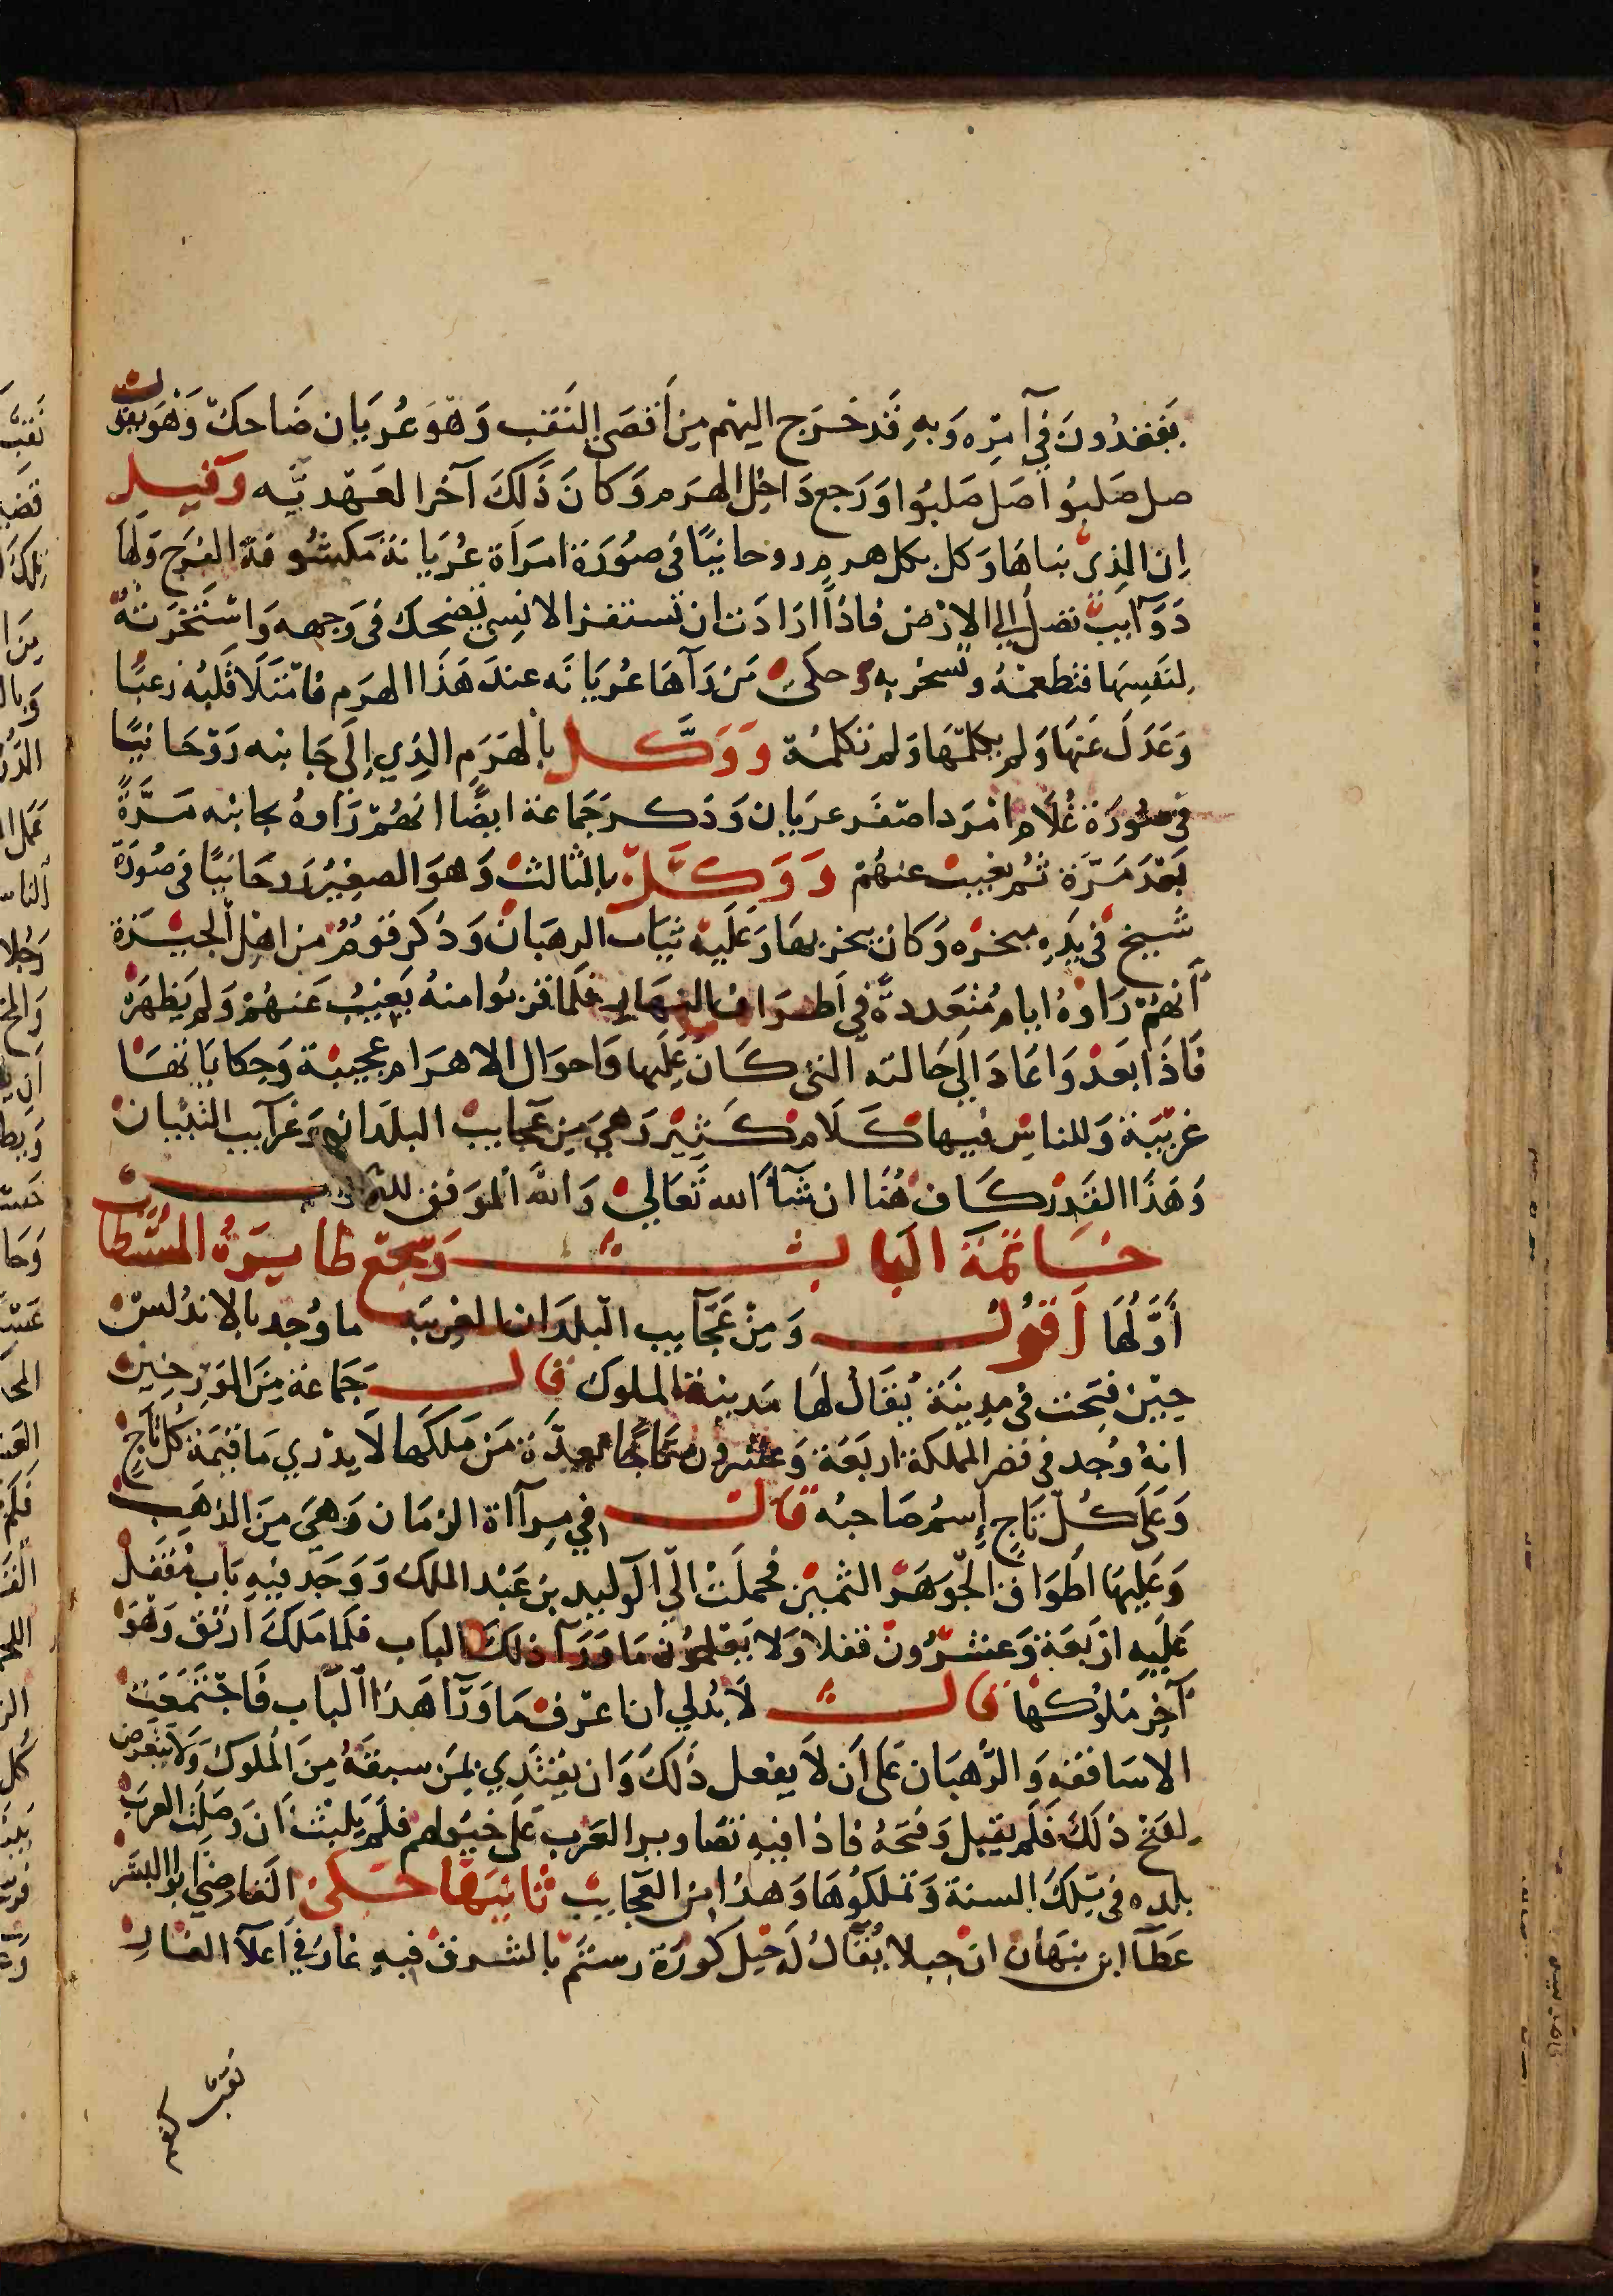 يفقدون في آمره وبه قد خرج اليهم من أقصى النقب وهو عريان ضاحك وهو يقول
صل صلبوا أصل صلبوا ورجع داخل الهرم وكان ذلك آخر العهد به وقيل
ان الذى بناها وكل بكل هرم روحانيًا فى صورة امرأة عريانة مكشوفة الفرج ولها
دوآيب تصل إلى الارض فاذا ارادت ان تستفز الانسي تضحك فى وجهه واستخرته
لنفسها فتطعمه وتسخر به وحكى من رآها عريانه عند هذا الهرم فامتلا قلبه رعبًا
وعدل عنها ولم يكلمها ولم تكلمه ووكل بالهرم الذي إلى جانبه روحانيًا
في صورة غلام امرد اصفر عريان وذكر جماعة ايضًا انهم راوه بجانبه مرةً
بعد مرة ثم يغيب عنهم ووكل بالثالث وهو الصغير روحانيًا فى صورة
شيخ فى يده مبخره وكان يبخر بها وعليه ثياب الرهبان وذكر قوم من اهل الجيزة
أنهم راوه ايام متعددة في أطراف النهار فلما قربوا منه يغيب عنهم ولم يظهر
فاذا بعدوا عاد الى حالته التى كان عليها واحوال الاهرام عجيبة وحكاياتها
غريبة وللناس فيها كلام كثير وهي من عجايب البلدان وغرآيب التبيان
وهذا القدر كاف هنا ان شآ الله تعالى والله الموفق
خاتمة الباب وسجع طاير المستطاب
أولها أقول ومن عجآيب البلدان الغريبه ما وجد بالاندلس
حين فتحت فى مدينة يقال لها مدينة الملوك قال جماعة من المورخين
انه وجد فى قصر المملكة اربعة وعشرون تاجًا بعدة من ملكها لا يدري ما قيمة كل تاج
وعلى كل تاج إسم صاحبه قال فى مرآاة الزمان وهي من الذهب
وعليها اطواق الجوهر الثمين فحملت الي الوليد بن عبد الملك ووجد فيه باب مقفل
عليه اربعة وعشرون قفلا ولا يعلمون ما ورآ ذلك الباب فلما ملك ارتق وهو
آخر ملوكها قال لابد لي ان اعرف ما ورآ هذا الباب فاجتمعت
الاساقفه والرهبان على أن لا يفعل ذلك وان يقتدي بمن سبقه من الملوك ولا يتعرض
لفتح ذلك فلم يقبل وفتحه فاذا فيه تصاوير العرب على خيولهم فلم يلبث أن وصلت العرب
بلده فى تلك السنة وتملكوها وهذا من العجايب ثانيها حكى القاضي ابو البشر
عطآ ابن نبهان ان جبلا يقال له جبل كورة رستم بالشرق فيه غار في أعلآ الغار
نقب